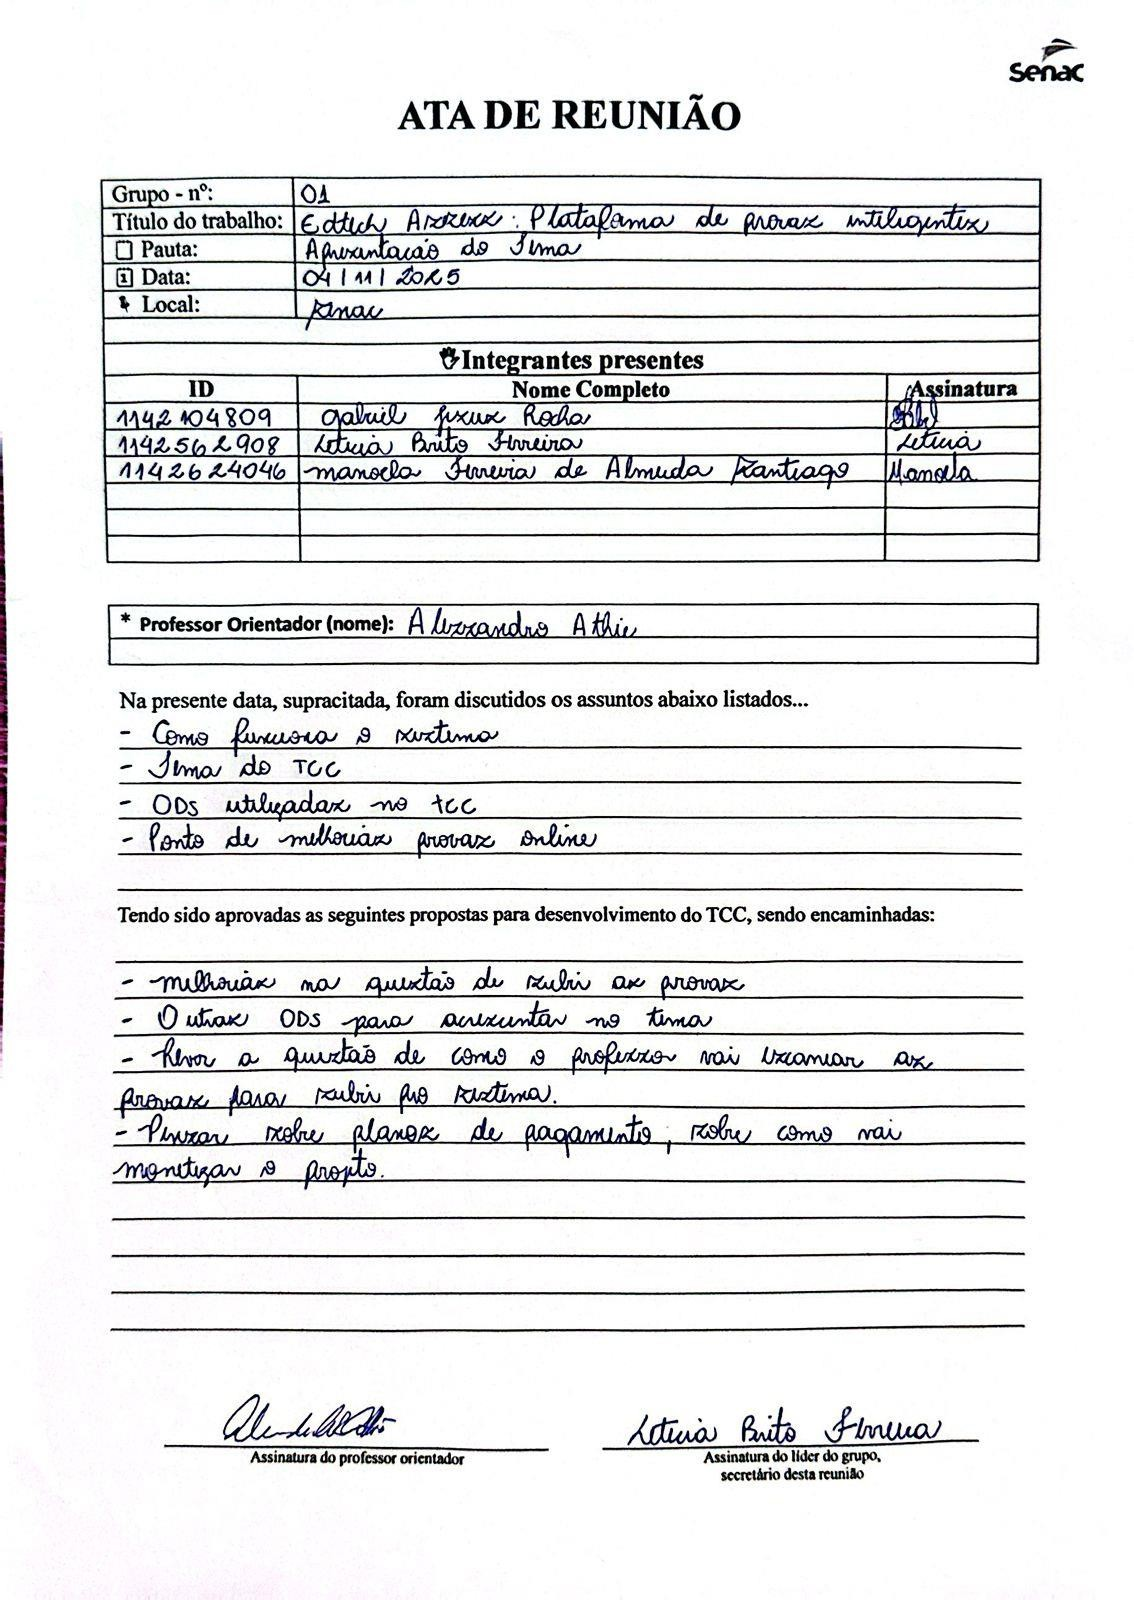 senac
ATA DE REUNIÃO
Grupo - nº: 01
Título do trabalho: Edtech Assess: Plataforma de provas inteligentes
Pauta: Apresentação do Tema
Data: 04/11/2025
Local: Senac
Integrantes presentes
ID Nome Completo Assinatura
1142104809 Gabriel Jesus Rocha
1142562908 Leticia Brito Ferreira Leticia
1142624046 manoela Ferreira de Almeida Santiago Manoela
* Professor Orientador (nome): Alessandro Athie
Na presente data, supracitada, foram discutidos os assuntos abaixo listados...
- Como funciona o sistema
- Tema do TCC
- ODS utilizadas no TCC
- Ponto de melhorias provas online
Tendo sido aprovadas as seguintes propostas para desenvolvimento do TCC, sendo encaminhadas:
- melhorias na questão de subir as provas
- Outras ODS para acrescentar no tema
- Rever a questão de como o professor vai escanear as
provas para subir pro sistema.
- Pensar sobre planos de pagamento, sobre como vai
monetizar o projeto.
Leticia Brito Ferreira
Assinatura do professor orientador
Assinatura do líder do grupo,
secretário desta reunião